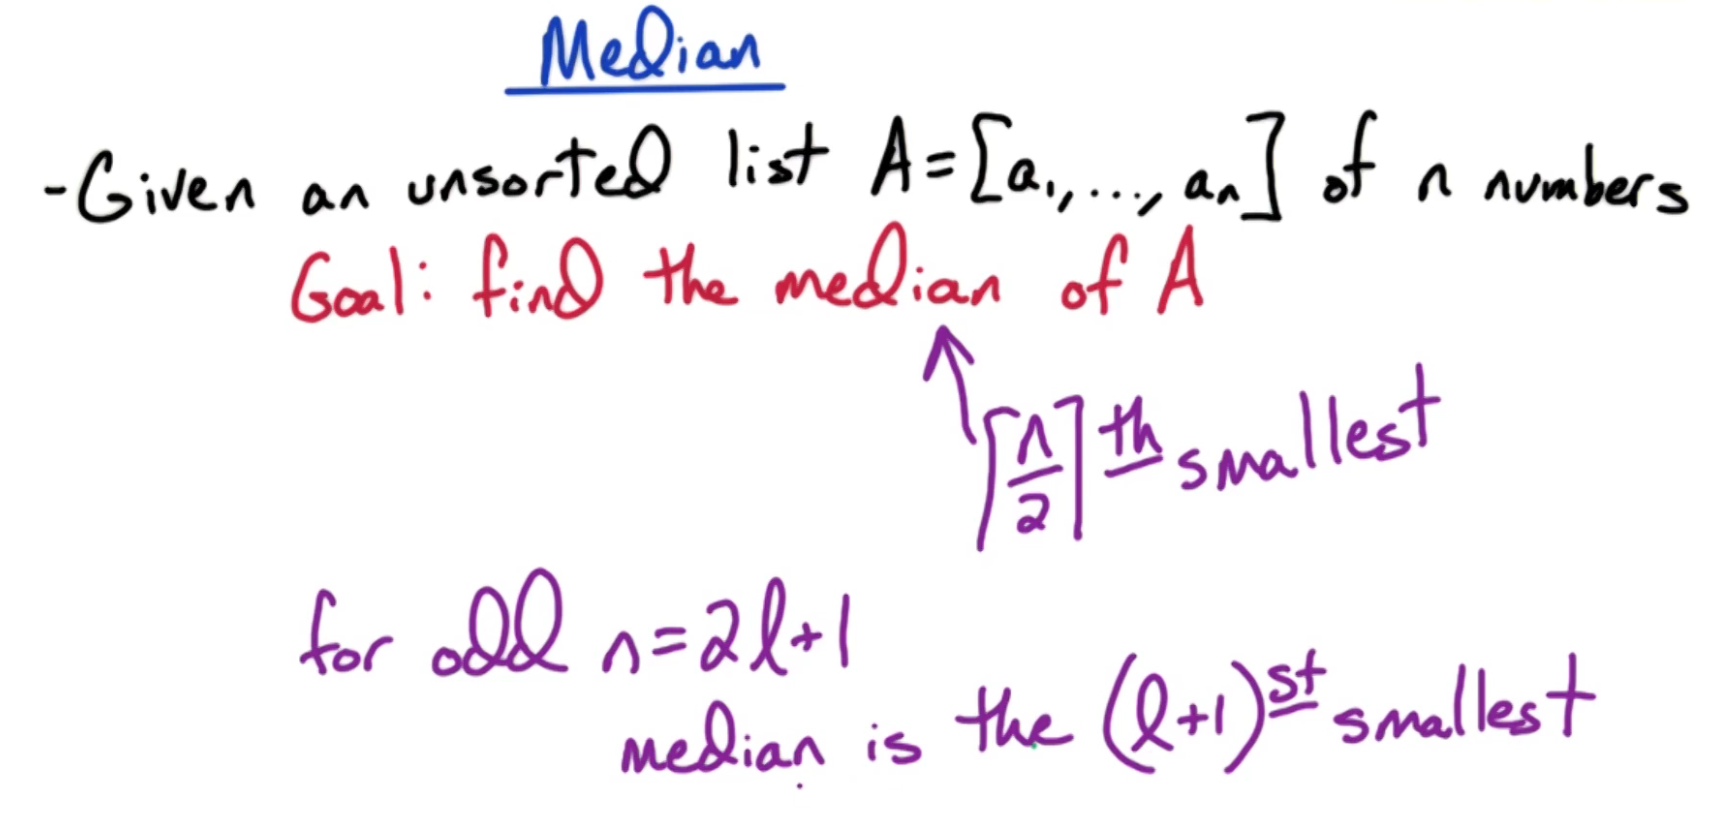 Median
-Given an unsorted list A=[a₁,...,aₙ] of n numbers
Goal: find the median of A
⌈n/2⌉th smallest
for odd n=2l+1
median is the (l+1)st smallest